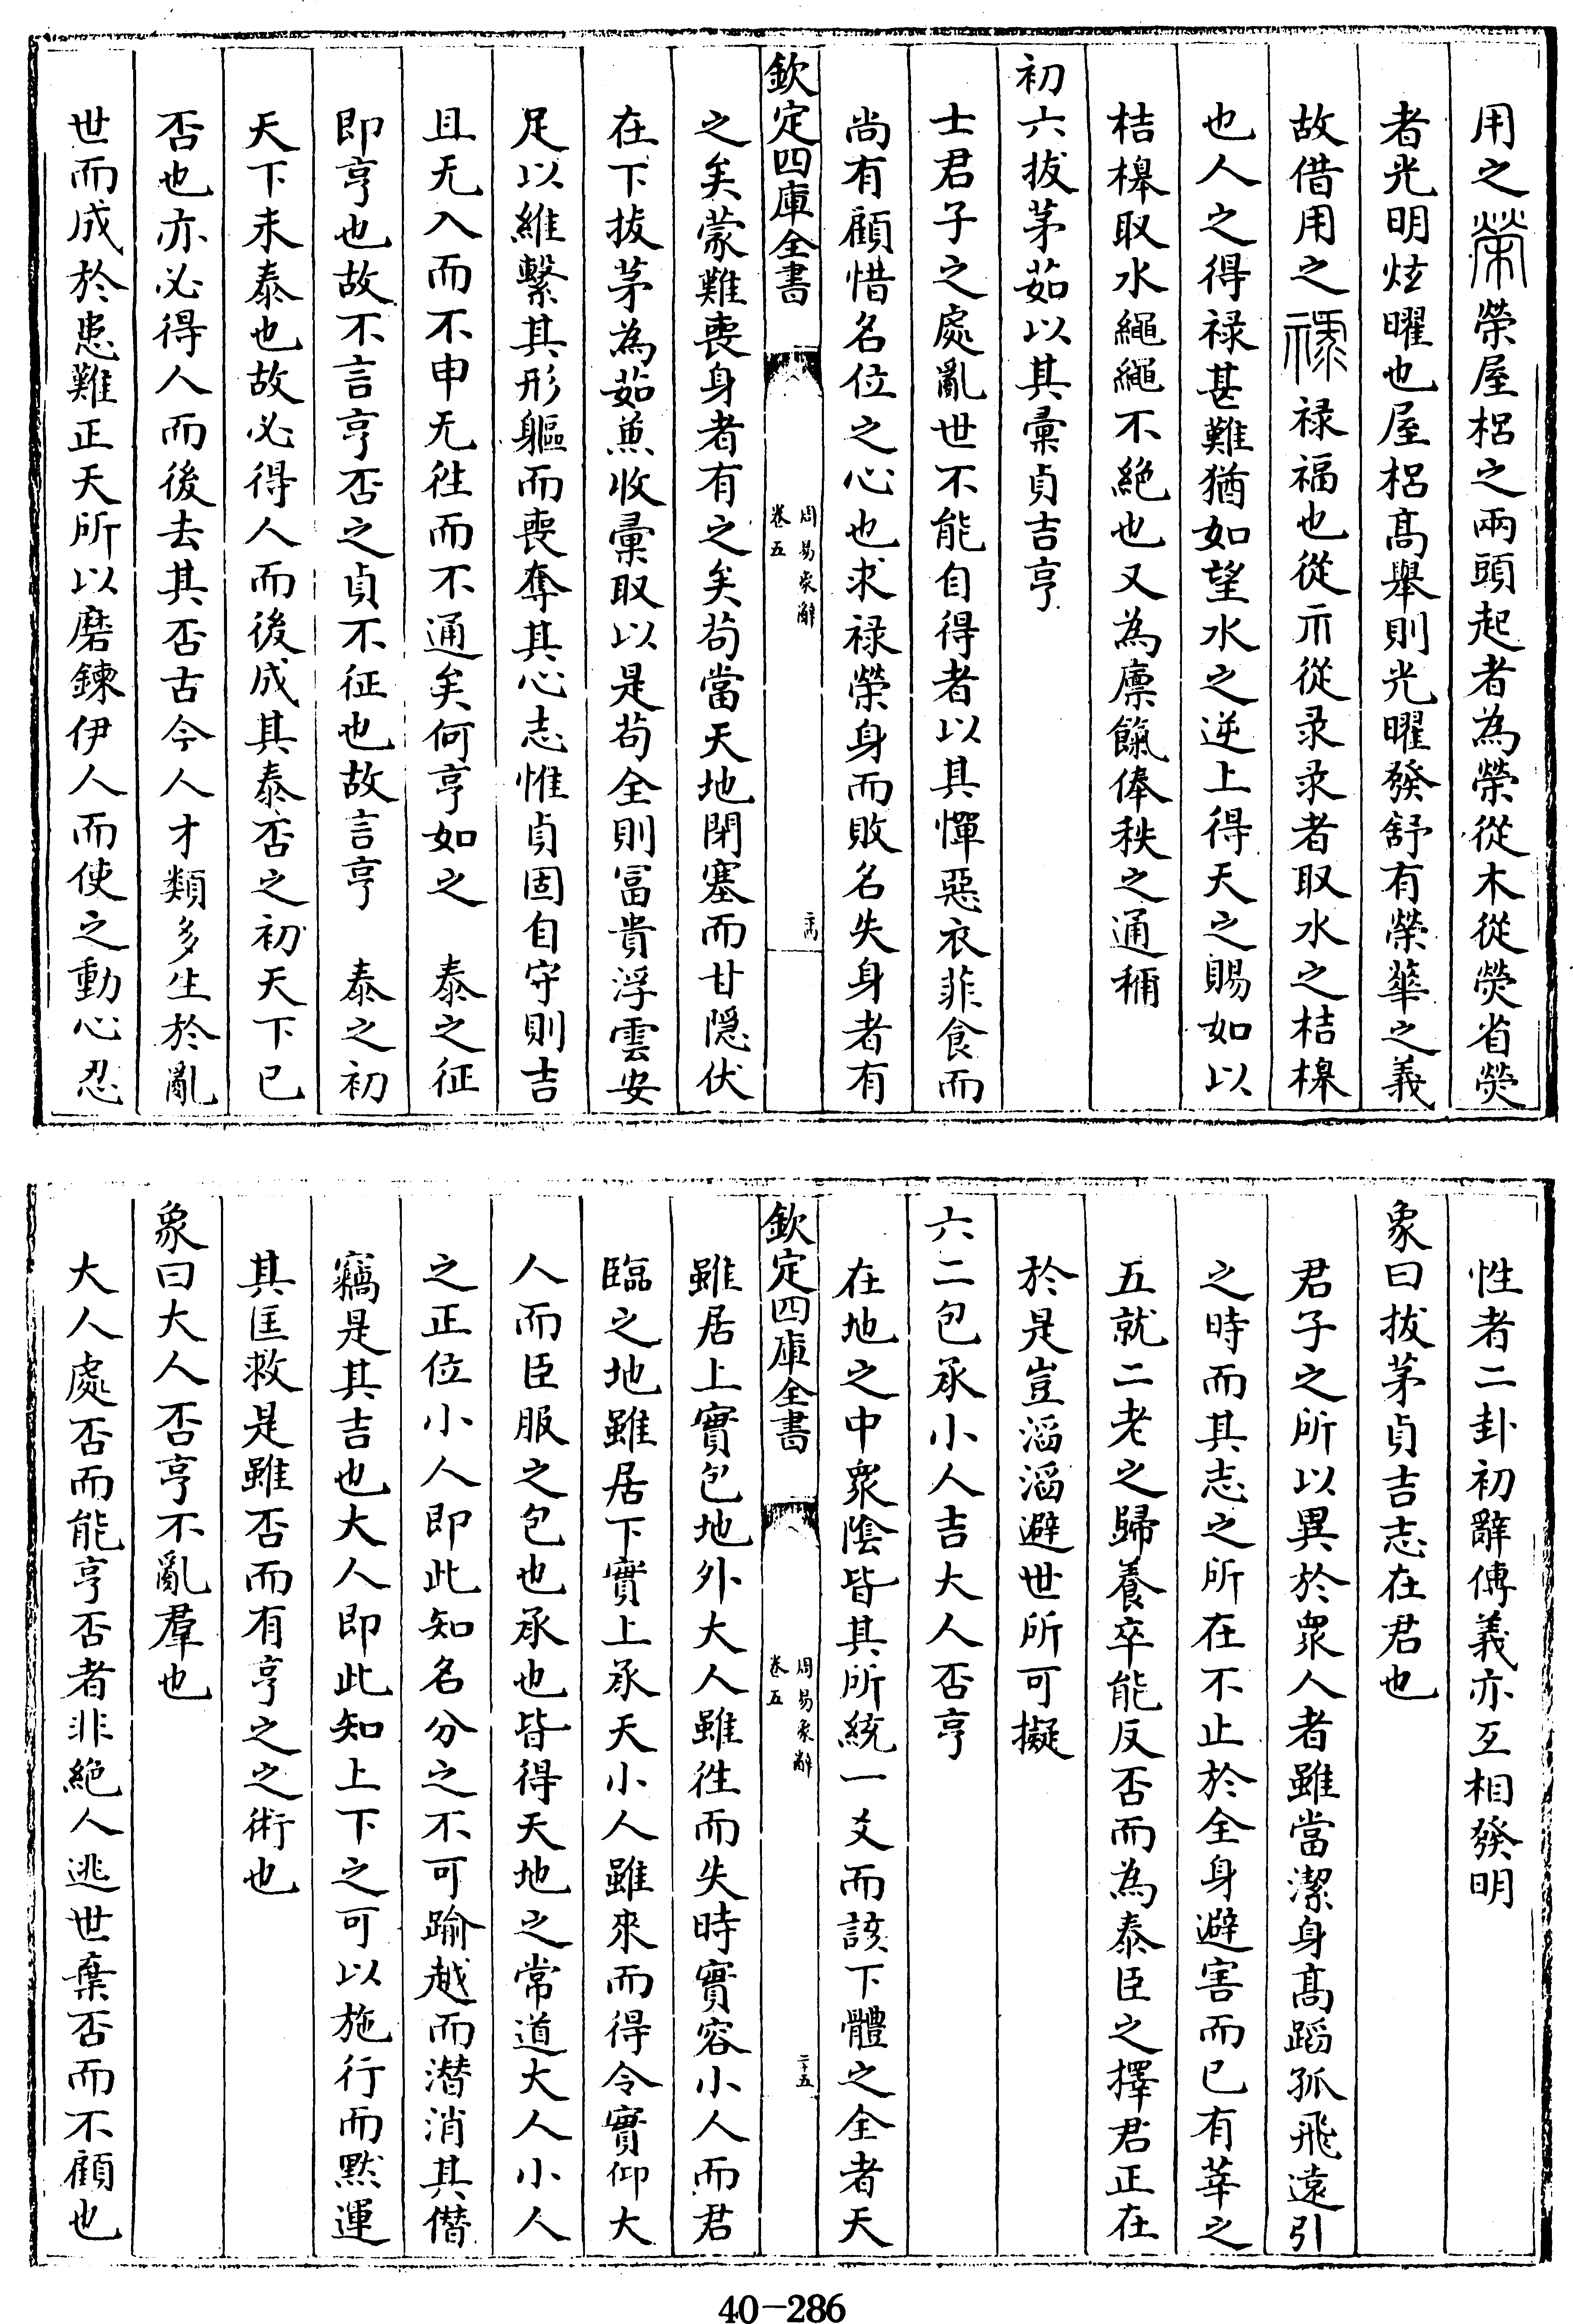 用之榮榮屋梠之兩頭起者為榮從木從熒省熒
者光明炫曜也屋梠髙舉則光曜發舒有榮華之義
故借用之祿禄福也從示從录录者取水之桔槔
也人之得禄甚難猶如望水之逆上得天之賜如以
桔槔取水繩繩不絶也又為廪餼俸秩之通稱
初六拔茅茹以其彚貞吉亨
士君子之處亂世不能自得者以其憚惡衣菲食而
尚有顧惜名位之心也求禄榮身而敗名失身者有
欽定四庫全書
周易象辭
卷五
二十四
之矣蒙難喪身者有之矣苟當天地閉塞而甘隠伏
在下拔茅為茹兼收彚取以是苟全則冨貴浮雲安
足以維繫其形軀而喪奪其心志惟貞固自守則吉
且无入而不申无徃而不通矣何亨如之　泰之征
即亨也故不言亨否之貞不征也故言亨　泰之初
天下未泰也故必得人而後成其泰否之初天下已
否也亦必得人而後去其否古今人才類多生於亂
世而成於患難正天所以磨鍊伊人而使之動心忍
性者二卦初辭傳義亦互相發明
象曰拔茅貞吉志在君也
君子之所以異於衆人者雖當潔身髙蹈孤飛遠引
之時而其志之所在不止於全身避害而已有莘之
五就二老之歸養卒能反否而為泰臣之擇君正在
於是豈滔滔避世所可擬
六二包承小人吉大人否亨
在地之中衆陰皆其所統一爻而該下體之全者天
欽定四庫全書
周易象辭
卷五
二十五
雖居上實包地外大人雖徃而失時實容小人而君
臨之地雖居下實上承天小人雖來而得令實仰大
人而臣服之包也承也皆得天地之常道大人小人
之正位小人即此知名分之不可踰越而潛消其僭
竊是其吉也大人即此知上下之可以施行而黙運
其匡救是雖否而有亨之之術也
象曰大人否亨不亂羣也
大人處否而能亨否者非絶人逃世棄否而不顧也
40-286